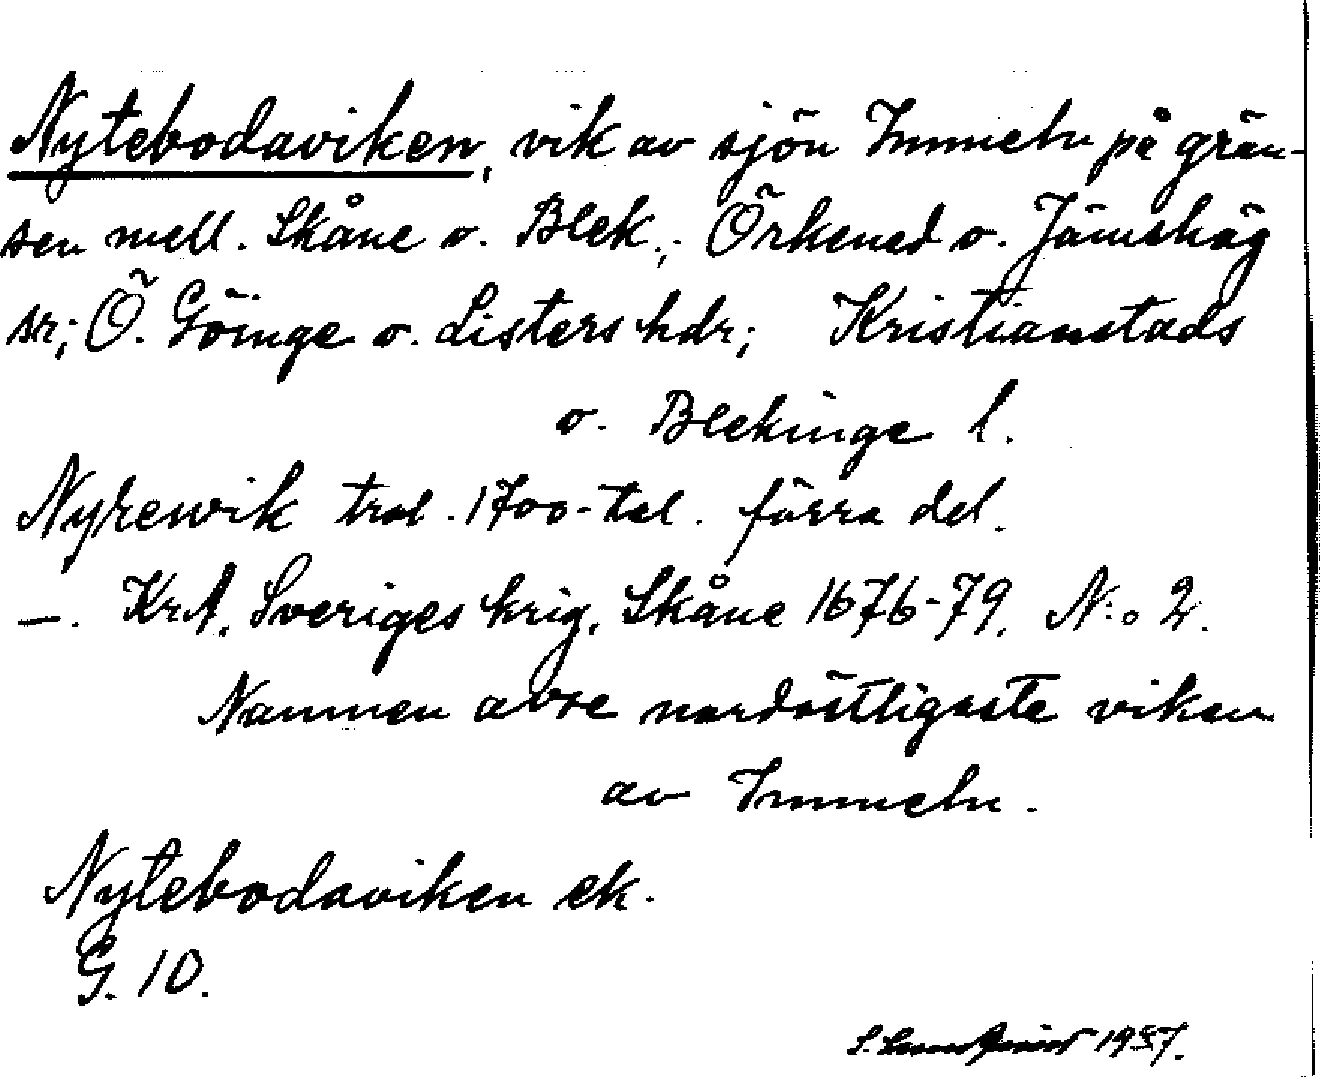 Nytebodaviken, vik av sjön Immeln på grän-
sen mell. Skåne o. Blek.; Örkened o. Jämshög
sr; Ö. Göinge o. Listers hdr; Kristianstads
o. Blekinge l.
Nyrewik trol. 1700-tal. förra del.
—. KrA. Sveriges krig. Skåne 1676-79. N:o 2.
Namnen avse nordöstligaste viken
av Immeln.
Nytebodaviken ek.
G. 10.
1957.